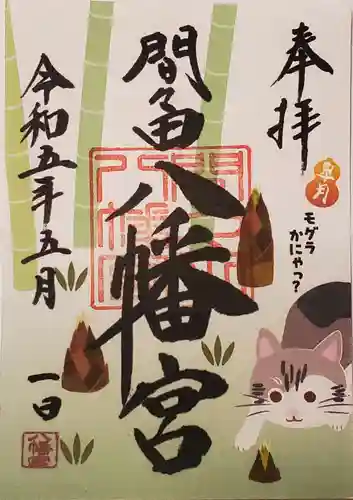 奉拝
皐月
モグラ
かにゃっ?
間々田八幡宮
令和五年五月
一日